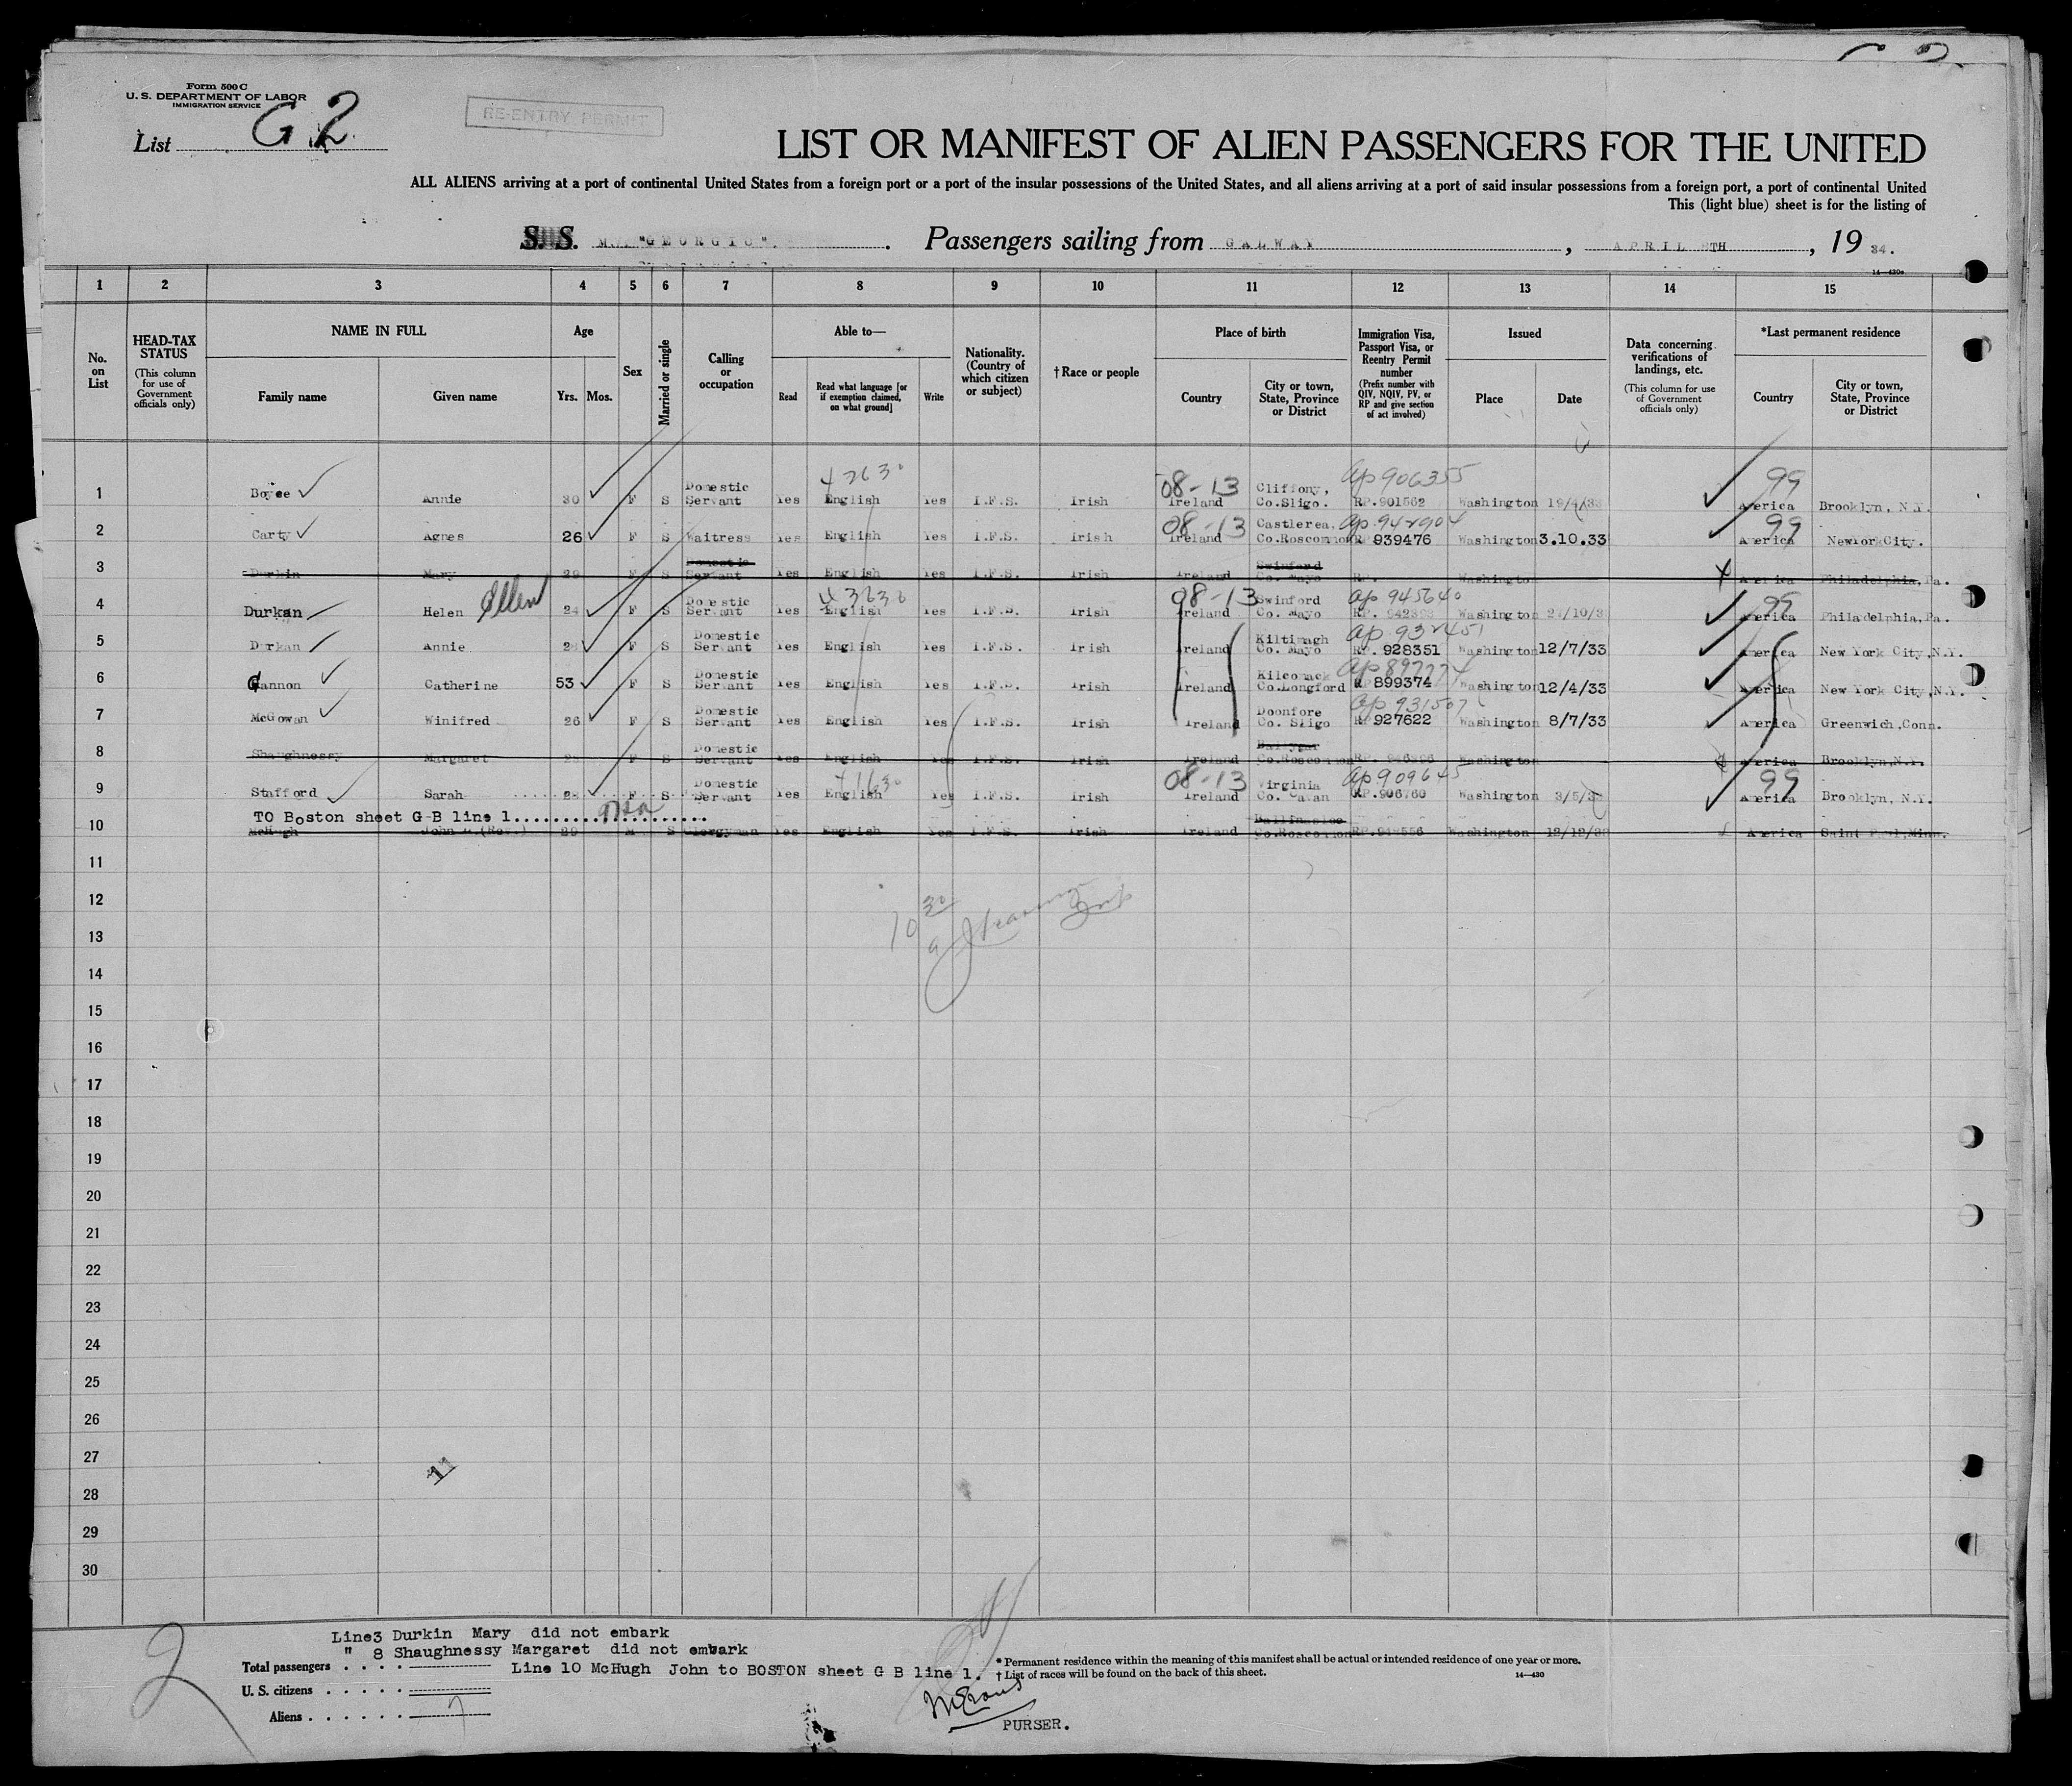 Form 500 C
U. S. DEPARTMENT OF LABOR
IMMIGRATION SERVICE
List G 2
RE-ENTRY PERMIT
LIST OR MANIFEST OF ALIEN PASSENGERS FOR THE UNITED
ALL ALIENS arriving at a port of continental United States from a foreign port or a port of the insular possessions of the United States, and all aliens arriving at a port of said insular possessions from a foreign port, a port of continental United
This (light blue) sheet is for the listing of
S. S. M. "GEORGIC". Passengers sailing from GALWAY, APRIL TH, 19 34.
14—430a
1 2 3 4 5 6 7 8 9 10 11 12 13 14 15
No. on List
HEAD-TAX STATUS (This column for use of Government officials only)
NAME IN FULL Family name Given name
Age Yrs. Mos.
Sex
Married or single
Calling or occupation
Able to— Read Read what language [or if exemption claimed, on what ground] Write
Nationality. (Country of which citizen or subject)
†Race or people
Place of birth Country City or town, State, Province or District
Immigration Visa, Passport Visa, or Reentry Permit number (Prefix number with QIV, NQIV, PV, or RP and give section of act involved)
Issued Place Date
Data concerning verifications of landings, etc. (This column for use of Government officials only)
*Last permanent residence Country City or town, State, Province or District
42630 08-13 ap 906355 99
1 Boyce Annie 30 F S Domestic Servant Yes English Yes I.F.S. Irish Ireland Cliffony, Co.Sligo. RP.901562 Washington 19/4/33 America Brooklyn, N.Y.
08-13 ap 942904 99
2 Carty Agnes 26 F S Waitress Yes English Yes I.F.S. Irish Ireland Castlerea, Co.Roscommon 939476 Washington 3.10.33 America New York City.
3 Durkin Mary 29 F S Domestic Servant Yes English Yes I.F.S. Irish Ireland Swinford Co. Mayo RP. Washington America Philadelphia, Pa.
Ellen 43636 08-13 ap 945640 99
4 Durkan Helen 24 F S Domestic Servant Yes English Yes I.F.S. Irish Ireland Swinford Co. Mayo RP. Washington America Philadelphia, Pa.
ap 932451
5 Durkan Annie F S Domestic Servant Yes English Yes I.F.S. Irish Ireland Kiltimagh Co. Mayo RP. 928351 Washington 12/7/33 America New York City, N.Y.
ap 897774
6 Gannon Catherine 53 F S Domestic Servant Yes English Yes I.F.S. Irish Ireland Kilcomack Co.Longford 899374 Washington 12/4/33 America New York City, N.Y.
ap 931507
7 McGowan Winifred 26 F S Domestic Servant Yes English Yes I.F.S. Irish Ireland Doonfore Co. Sligo 927622 Washington 8/7/33 America Greenwich, Conn.
8 Shaughnessy Margaret F S Domestic Servant Yes English Yes I.F.S. Irish Ireland Ballygar Co.Roscommon RP. Washington America Brooklyn, N.Y.
41630 08-13 ap 909645 99
9 Stafford Sarah F S Domestic Servant Yes English Yes I.F.S. Irish Ireland Virginia Co. Cavan RP.906760 Washington 3/5/33 America Brooklyn, N.Y.
TO Boston sheet G-B line 1
10 McHugh John (Rev.) 29 M S Clergyman Yes English Yes I.F.S. Irish Ireland Ballinasloe Co.Roscommon RP. Washington 12/12/33 America Saint Paul, Minn.
11
12
10 30
13
14
15
16
17
18
19
20
21
22
23
24
25
26
27
11
28
29
30
2
Line3 Durkin Mary did not embark
" 8 Shaughnessy Margaret did not embark
Line 10 McHugh John to BOSTON sheet G B line 1.
Total passengers
U. S. citizens
Aliens 7
*Permanent residence within the meaning of this manifest shall be actual or intended residence of one year or more.
†List of races will be found on the back of this sheet.
14—430
PURSER.